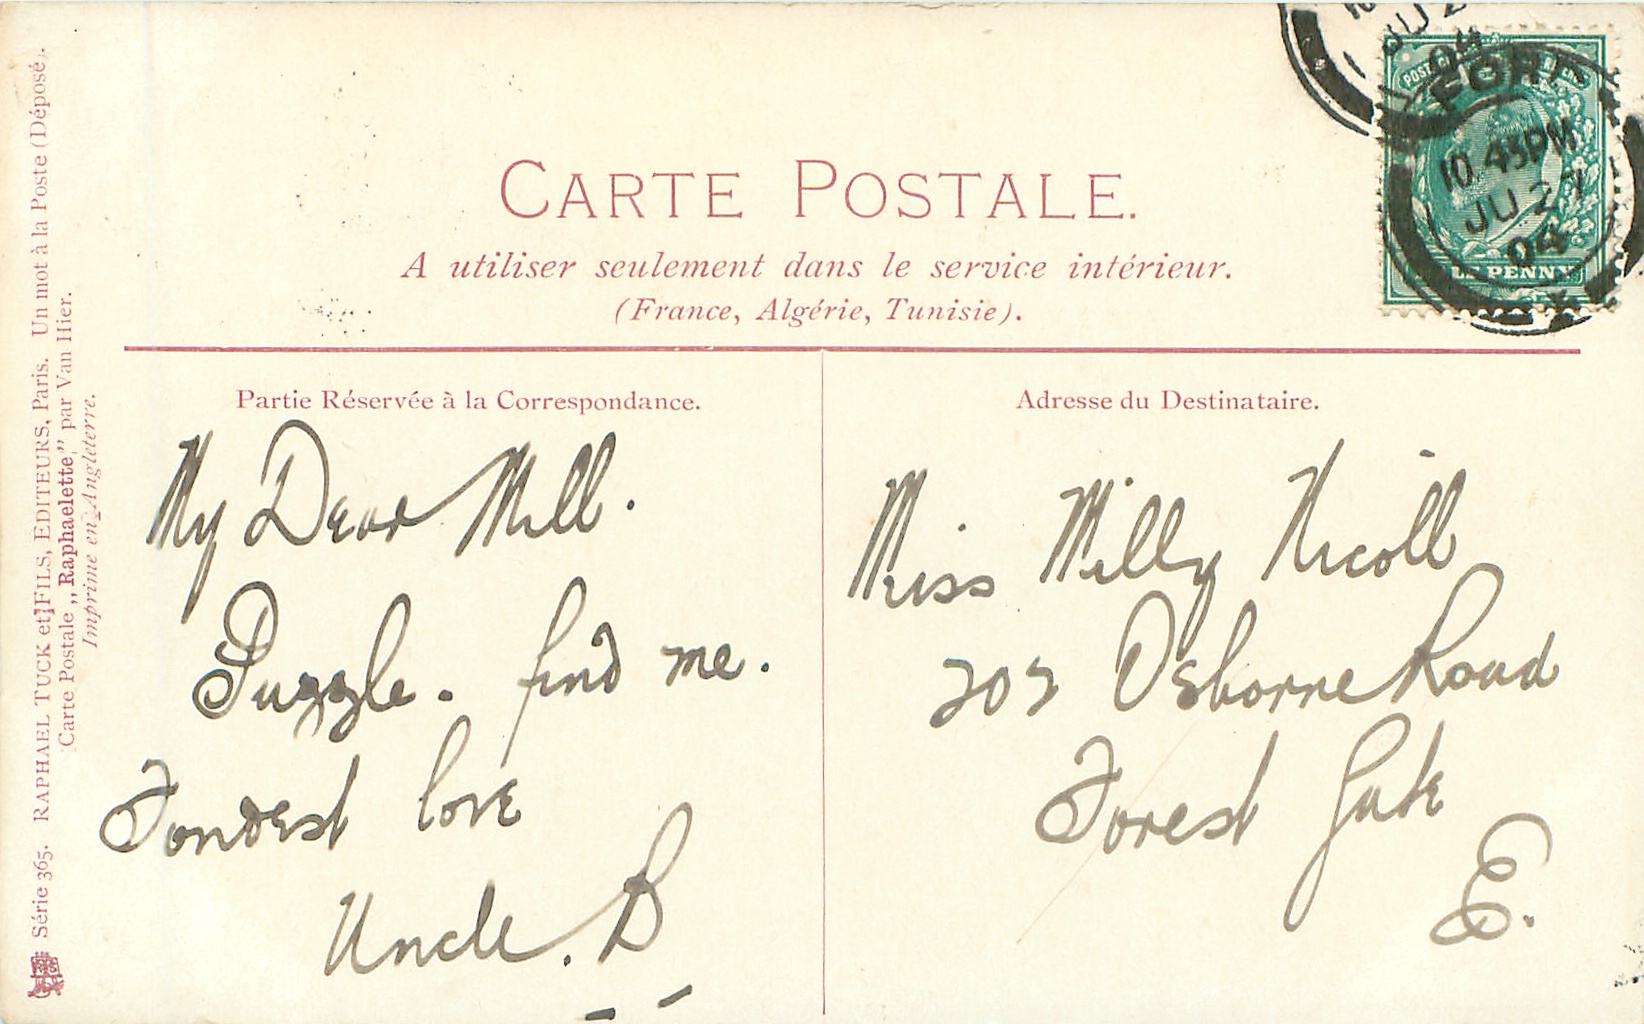 CARTE POSTALE.
A utiliser seulement dans le service intérieur.
(France, Algérie, Tunisie).
Partie Réservée à la Correspondance.
My Dear Mill.
Puzzle. find me.
Fondest love
Uncle. B
Adresse du Destinataire.
Miss Milly Nicoll
205 Osborne Road
Forest Gate
E.
Série 365. RAPHAEL TUCK et FILS, EDITEURS, Paris. Un mot à la Poste (Déposé).
Carte Postale „Raphaelette” par Van Hier.
Imprimé en Angleterre.
10.45PM
JU 27
04
PENNY
JU 2
04